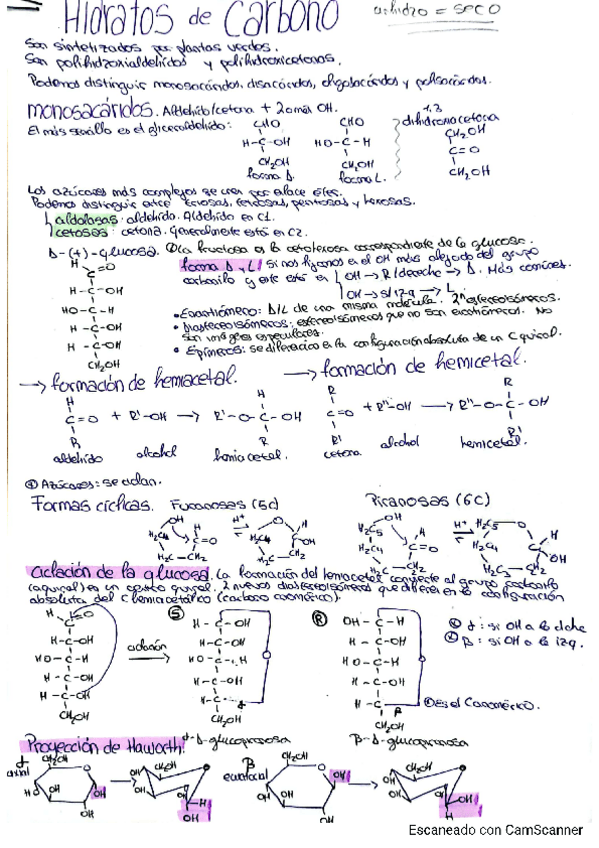 Hidratos de Carbono
anhidro = seco
Son sintetizados por plantas verdes.
Son polihidroxialdehídos y polihidroxicetonas.
Podemos distinguir monosacáridos, disacáridos, oligosacáridos y polisacáridos.
monosacáridos. Aldehído/cetona + 2 o más OH.
El más sencillo es el gliceraldehído:
CHO
H-C-OH
CH₂OH
forma D.
CHO
HO-C-H
CH₂OH
forma L.
1,3
dihidroxiacetona
CH₂OH
C=O
CH₂OH
Los azúcares más complejos se
Podemos distinguir entre triosas, tetrosas, pentosas y hexosas.
aldosas: aldehído. Aldehído en C1.
cetosas: cetona. Generalmente está en C2.
D-(+)-glucosa.
La fructosa es la cetohexosa correspondiente de la glucosa.
H
C=O
H-C-OH
HO-C-H
H-C-OH
H-C-OH
CH₂OH
forma D y L: si nos fijamos en el OH más alejado del grupo
carbonilo y este está en
OH → R/derecha → D. Más comunes.
OH → S/izq → L.
• Enantiómero: D/L de una misma molécula. 2ⁿ estereoisómeros.
• Diastereoisómeros: estereoisómeros que no son enantiómeros. No
son imágenes especulares.
• Epímeros: se diferencian en la configuración absoluta de un C quiral.
→ formación de hemiacetal.
H
C=O + R'-OH → R'-O-C-OH
R
aldehído
alcohol
hemiacetal.
→ formación de hemicetal.
R
C=O + R''-OH → R''-O-C-OH
R'
cetona
alcohol
hemicetal.
Azúcares: se ciclan.
Formas cíclicas.
Furanosas (5C)
Piranosas (6C)
ciclación de la glucosa. La formación del hemiacetal convierte al grupo carbonilo
(aquiral) en un centro quiral. 2 nuevos diastereoisómeros que difieren en la configuración
absoluta del C hemiacetálico (carbono anomérico).
H
C=O
H-C-OH
HO-C-H
H-C-OH
H-C-OH
CH₂OH
ciclación
S
H-C-OH
H-C-OH
HO-C-H
H-C-OH
H-C-
CH₂OH
α-D-glucopiranosa
R
OH-C-H
H-C-OH
HO-C-H
H-C-OH
H-C-
β
CH₂OH
β-D-glucopiranosa
α: si OH a la dcha
β: si OH a la izq.
Es el C anomérico.
Proyección de Haworth:
α
axial
CH₂OH
HO
OH
OH
OH
β
ecuatorial
CH₂OH
OH
OH
OH
OH
Escaneado con CamScanner